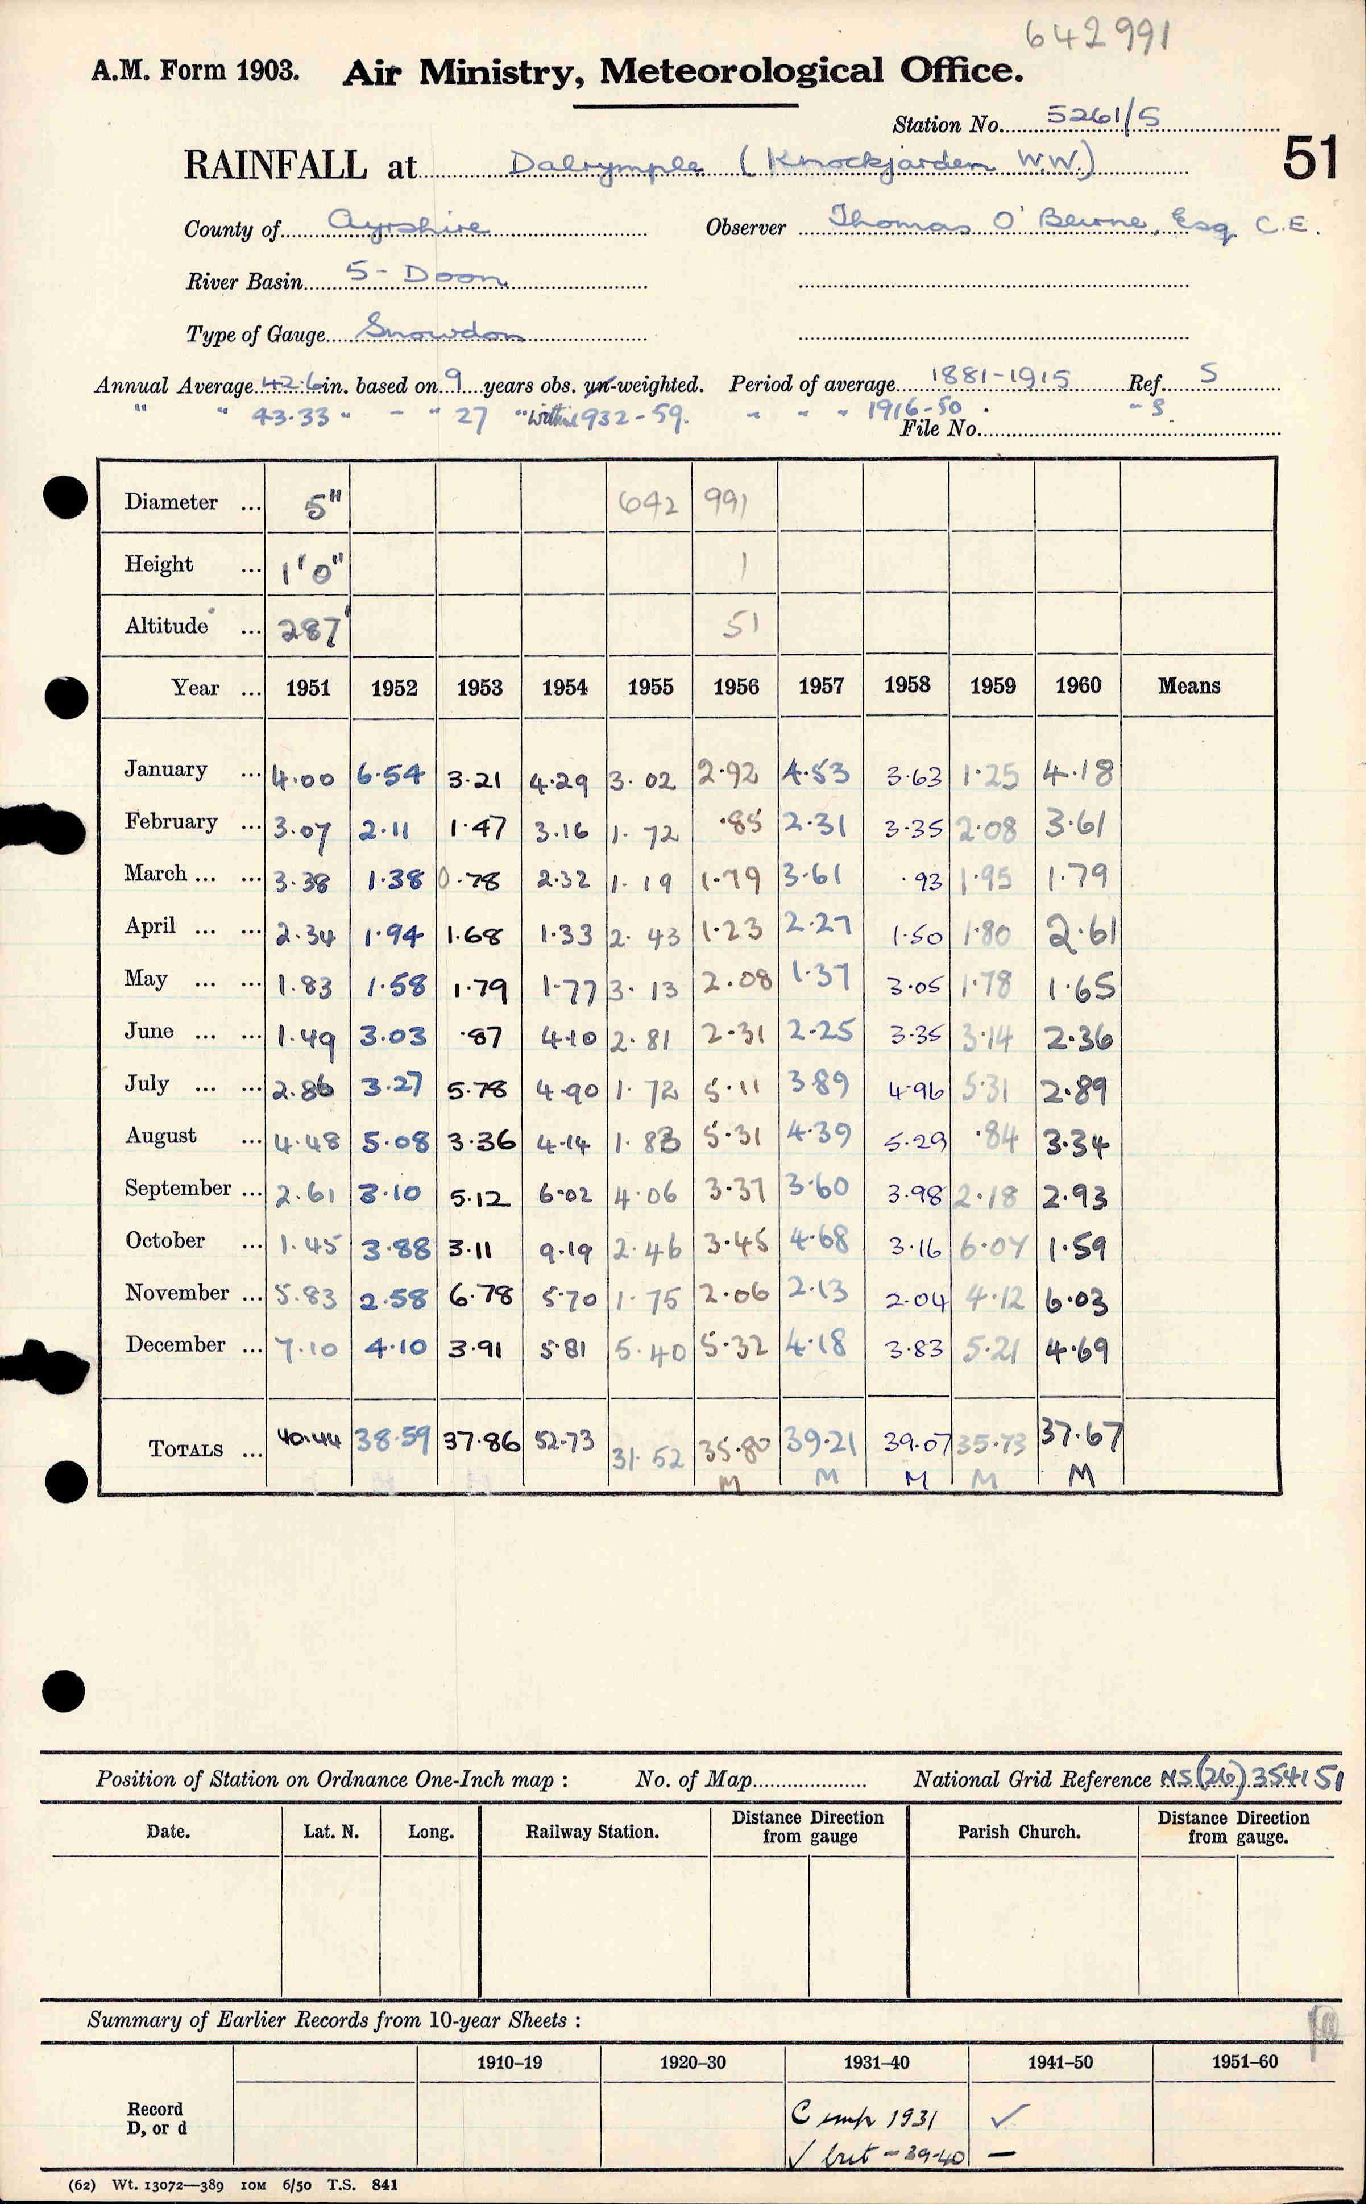 642991
A.M. Form 1903. Air Ministry, Meteorological Office.
Station No. 5261/5
51
RAINFALL at Dalrymple (Knockjarden W.W.)
County of Ayrshire Observer Thomas O'Beirne, Esq C.E.
River Basin 5 - Doon
Type of Gauge Snowdon
Annual Average 42.6 in. based on 9 years obs. un-weighted. Period of average 1881-1915 Ref. S
" " 43.33 " - " 27 " within 1932-59. " " " 1916-50. " S
File No.
Diameter ... 5" 642 991
Height ... 1'0" 1
Altitude ... 287' 51
Year ... 1951 1952 1953 1954 1955 1956 1957 1958 1959 1960 Means
January ... 4.00 6.54 3.21 4.29 3.02 2.92 4.53 3.63 1.25 4.18
February ... 3.07 2.11 1.47 3.16 1.72 .85 2.31 3.35 2.08 3.61
March ... ... 3.38 1.38 0.78 2.32 1.19 1.79 3.61 .93 1.95 1.79
April ... ... 2.34 1.94 1.68 1.33 2.43 1.23 2.27 1.50 1.80 2.61
May ... ... 1.83 1.58 1.79 1.77 3.13 2.08 1.37 3.05 1.78 1.65
June ... ... 1.49 3.03 .87 4.10 2.81 2.31 2.25 3.35 3.14 2.36
July ... ... 2.86 3.27 5.78 4.90 1.72 5.11 3.89 4.96 5.31 2.89
August ... 4.48 5.08 3.36 4.14 1.83 5.31 4.39 5.29 .84 3.34
September ... 2.61 3.10 5.12 6.02 4.06 3.37 3.60 3.98 2.18 2.93
October ... 1.45 3.88 3.11 9.19 2.46 3.45 4.68 3.16 6.07 1.59
November ... 5.83 2.58 6.78 5.70 1.75 2.06 2.13 2.04 4.12 6.03
December ... 7.10 4.10 3.91 5.81 5.40 5.32 4.18 3.83 5.21 4.69
TOTALS ... 40.44 38.59 37.86 52.73 31.52 35.80 39.21 39.07 35.73 37.67
M M M M M
Position of Station on Ordnance One-Inch map : No. of Map National Grid Reference NS(26)354151
Date. Lat. N. Long. Railway Station. Distance Direction from gauge Parish Church. Distance Direction from gauge.
Summary of Earlier Records from 10-year Sheets :
1910–19 1920–30 1931–40 1941–50 1951–60
Record D, or d
C 1931 ✓
✓ but - 39-40 -
(62) Wt. 13072—389 10M 6/50 T.S. 841